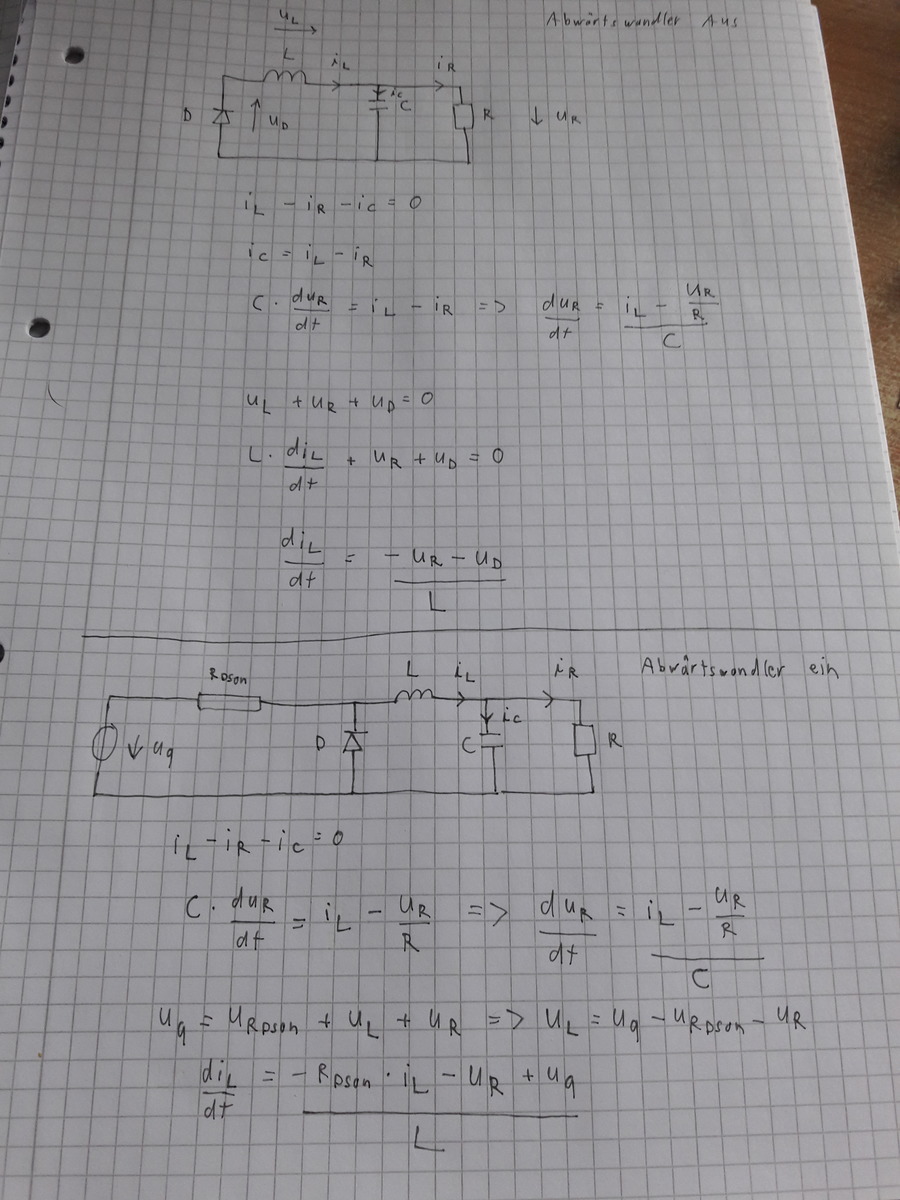 Abwärtswandler Aus
u_L
L i_L i_R
D u_D i_C C R ↓ u_R
i_L - i_R - i_C = 0
i_C = i_L - i_R
C · du_R/dt = i_L - i_R => du_R/dt = (i_L - u_R/R)/C
u_L + u_R + u_D = 0
L · di_L/dt + u_R + u_D = 0
di_L/dt = (-u_R - u_D)/L
Abwärtswandler ein
R_DSon L i_L i_R
↓ u_q D C i_C R
i_L - i_R - i_C = 0
C · du_R/dt = i_L - u_R/R => du_R/dt = (i_L - u_R/R)/C
u_q = u_RDSon + u_L + u_R => u_L = u_q - u_RDSon - u_R
di_L/dt = (-R_DSon · i_L - u_R + u_q)/L